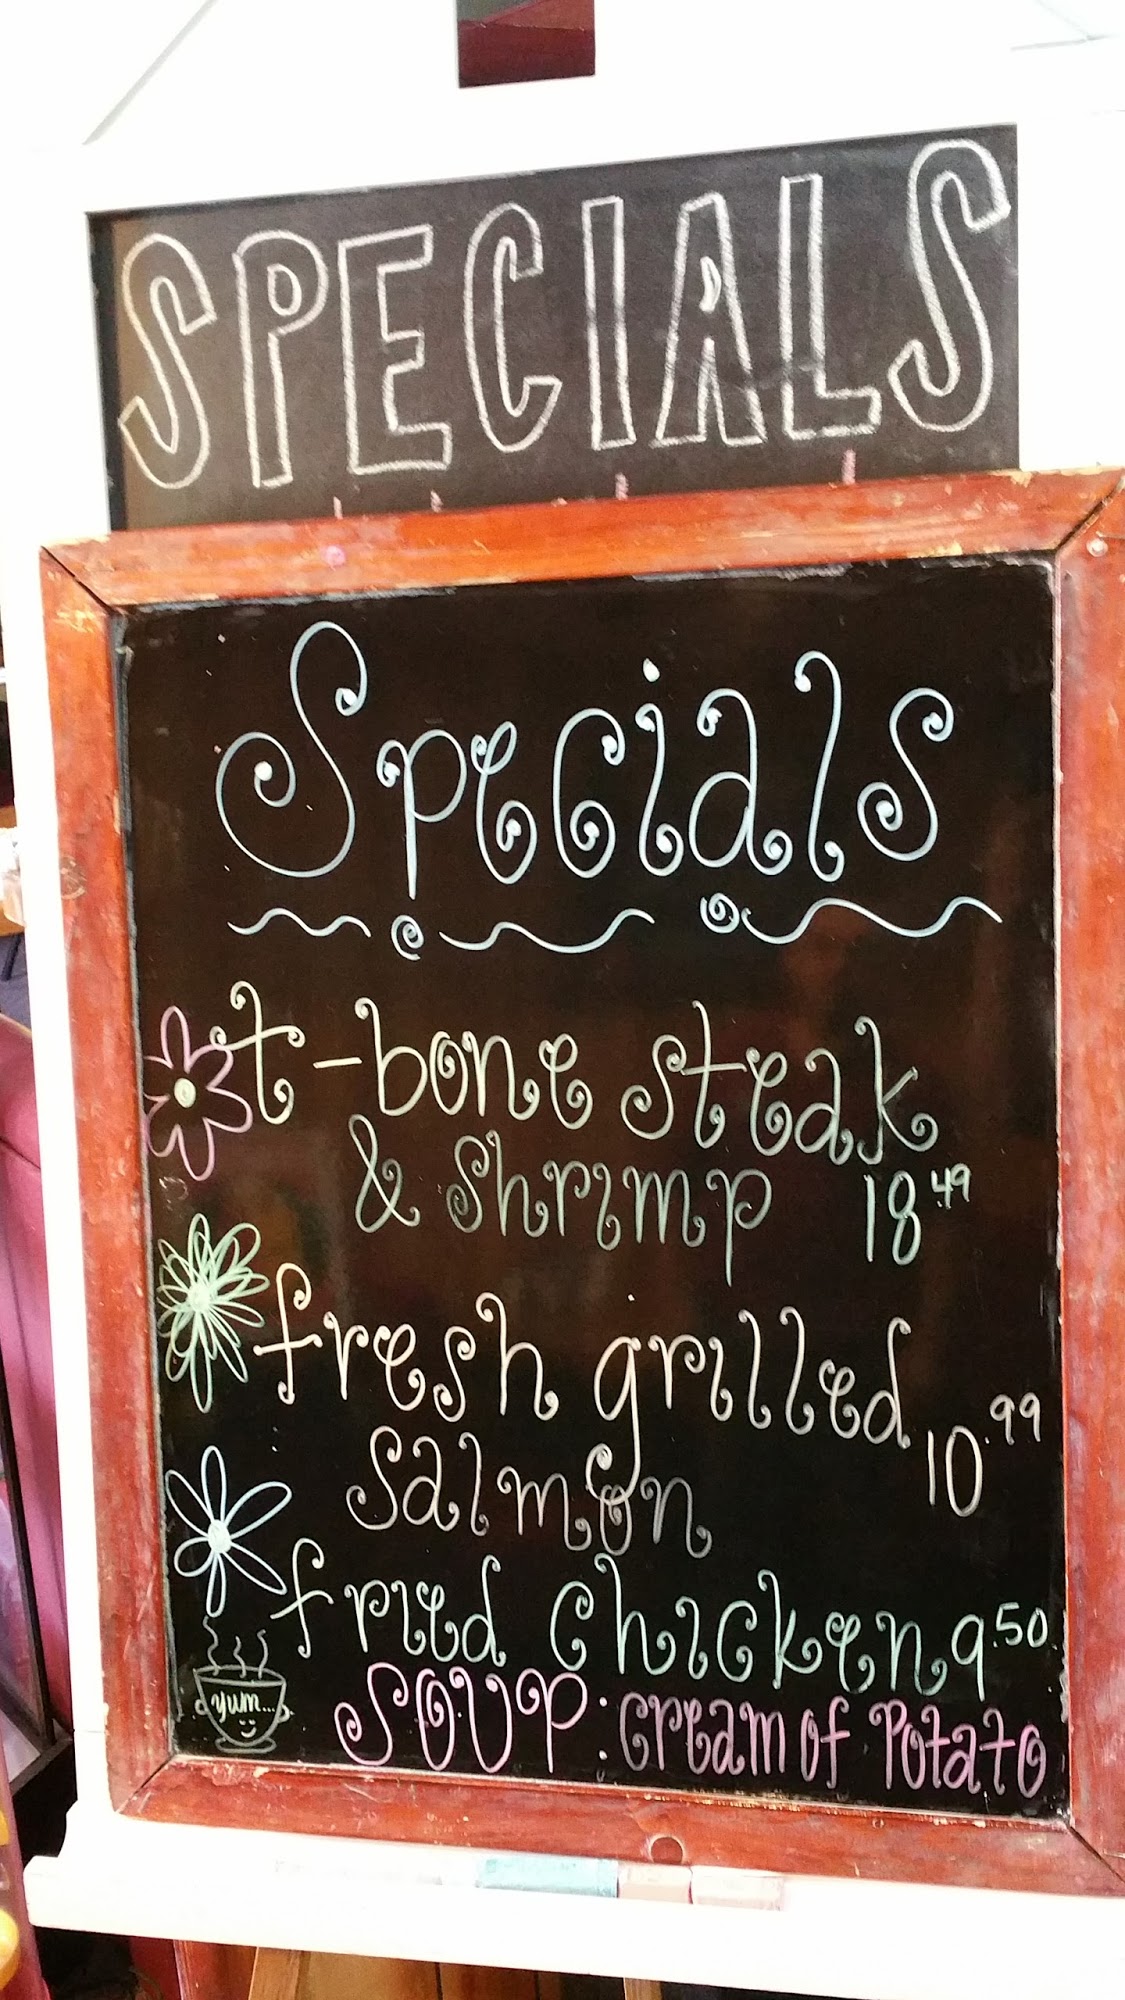 SPECIALS
Specials
t-bone steak
& shrimp 18.49
fresh grilled
salmon 10.99
fried chicken 9.50
yum...
SOUP: cream of Potato